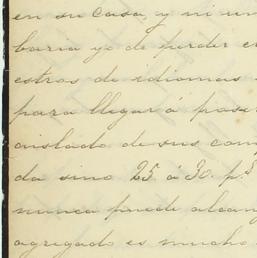 en su casa, y ni un
baria yo de perder e
estros de idiomas
para llegar á pose
aislado de sus com
da sino 25 á 30 p.s
nunca puede alcan
agregado es mucho